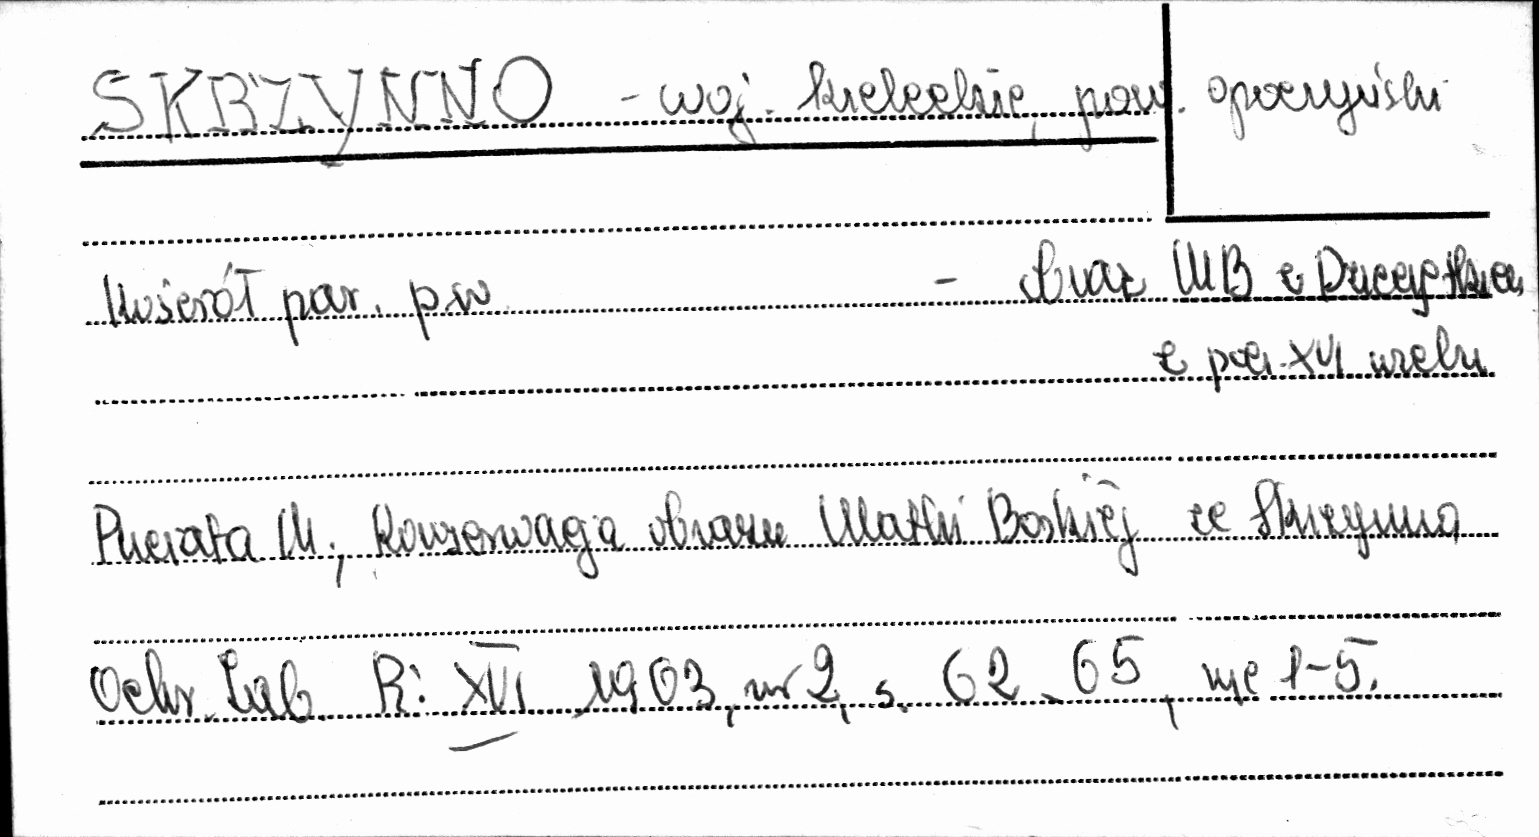 SKRZYNNO - woj. kieleckie, pow. opoczyński
Kościół par. p.w. - obraz MB z Dzieciątkiem
z pocz. XVI wieku
M., Konserwacja obrazu Matki Boskiej ze Skrzynna,
Ochr. Zab. R: XVI 1963, nr 2, s. 62-65, ryc 1-5.